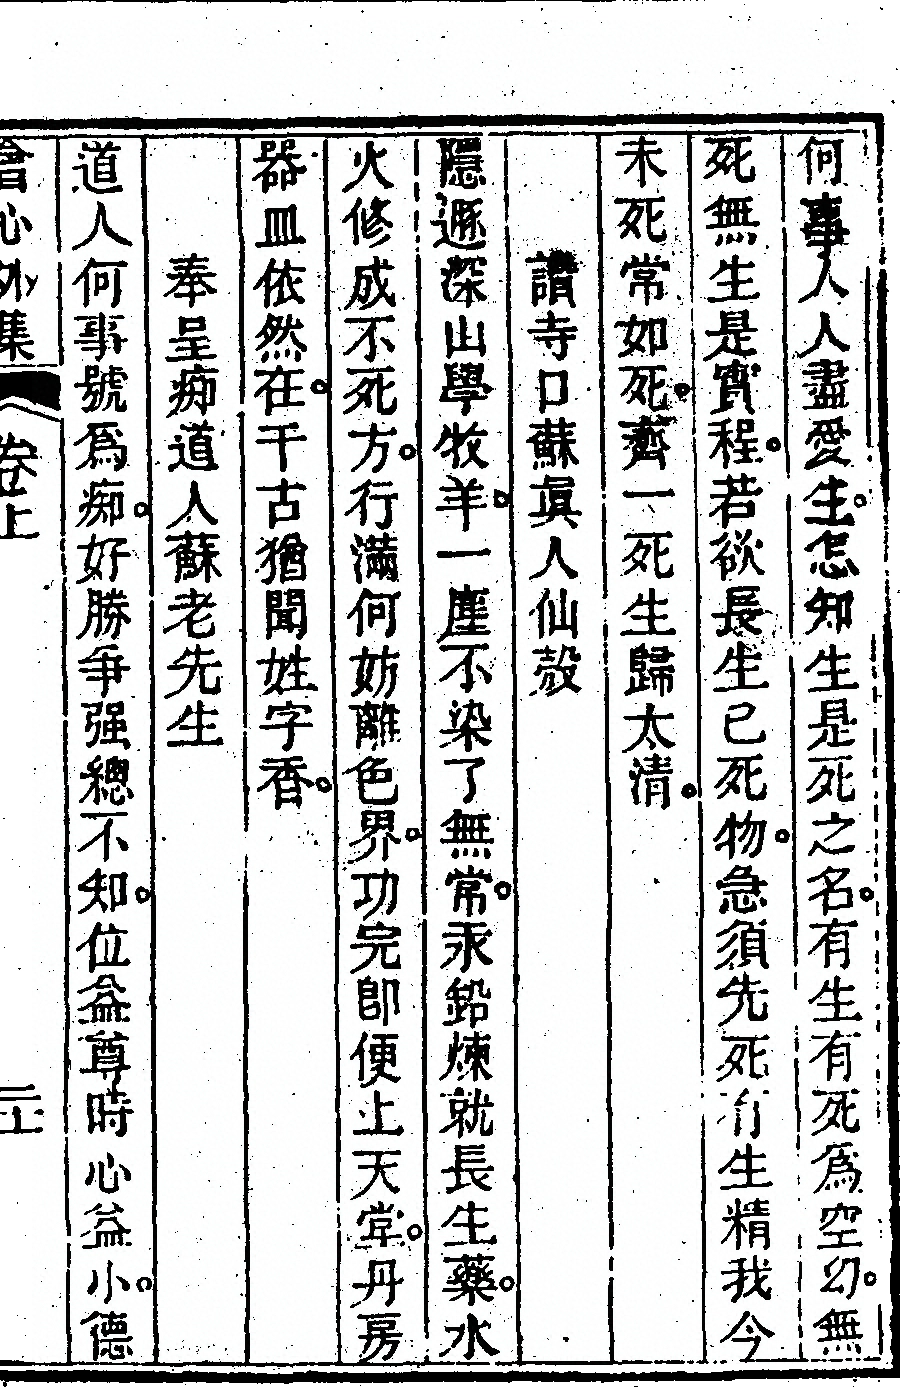 何事人人盡愛生怎知生是死之名有生有死爲空幻無
死無生是實程若欲長生已死物急須先死有生精我今
未死常如死齊一死生歸太清
讚寺口蘇眞人仙殼
隱遯深山學牧羊一塵不染了無常汞鉛煉就長生藥水
火修成不死方行滿何妨離色界功完卽便上天堂丹房
器皿依然在千古猶聞姓字香
奉呈痴道人蘇老先生
道人何事號爲痴好勝爭强總不知位益尊時心益小德
會心外集 卷上 二十